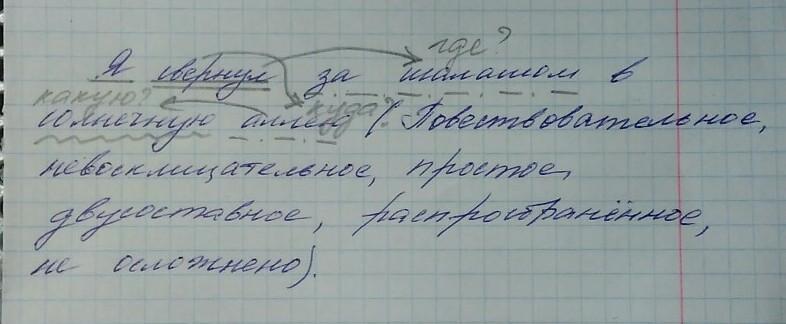 где?
Я свернул за шалашом в
какую? куда?
солнечную аллею (Повествовательное,
невосклицательное, простое,
двусоставное, распространённое,
не осложнено).